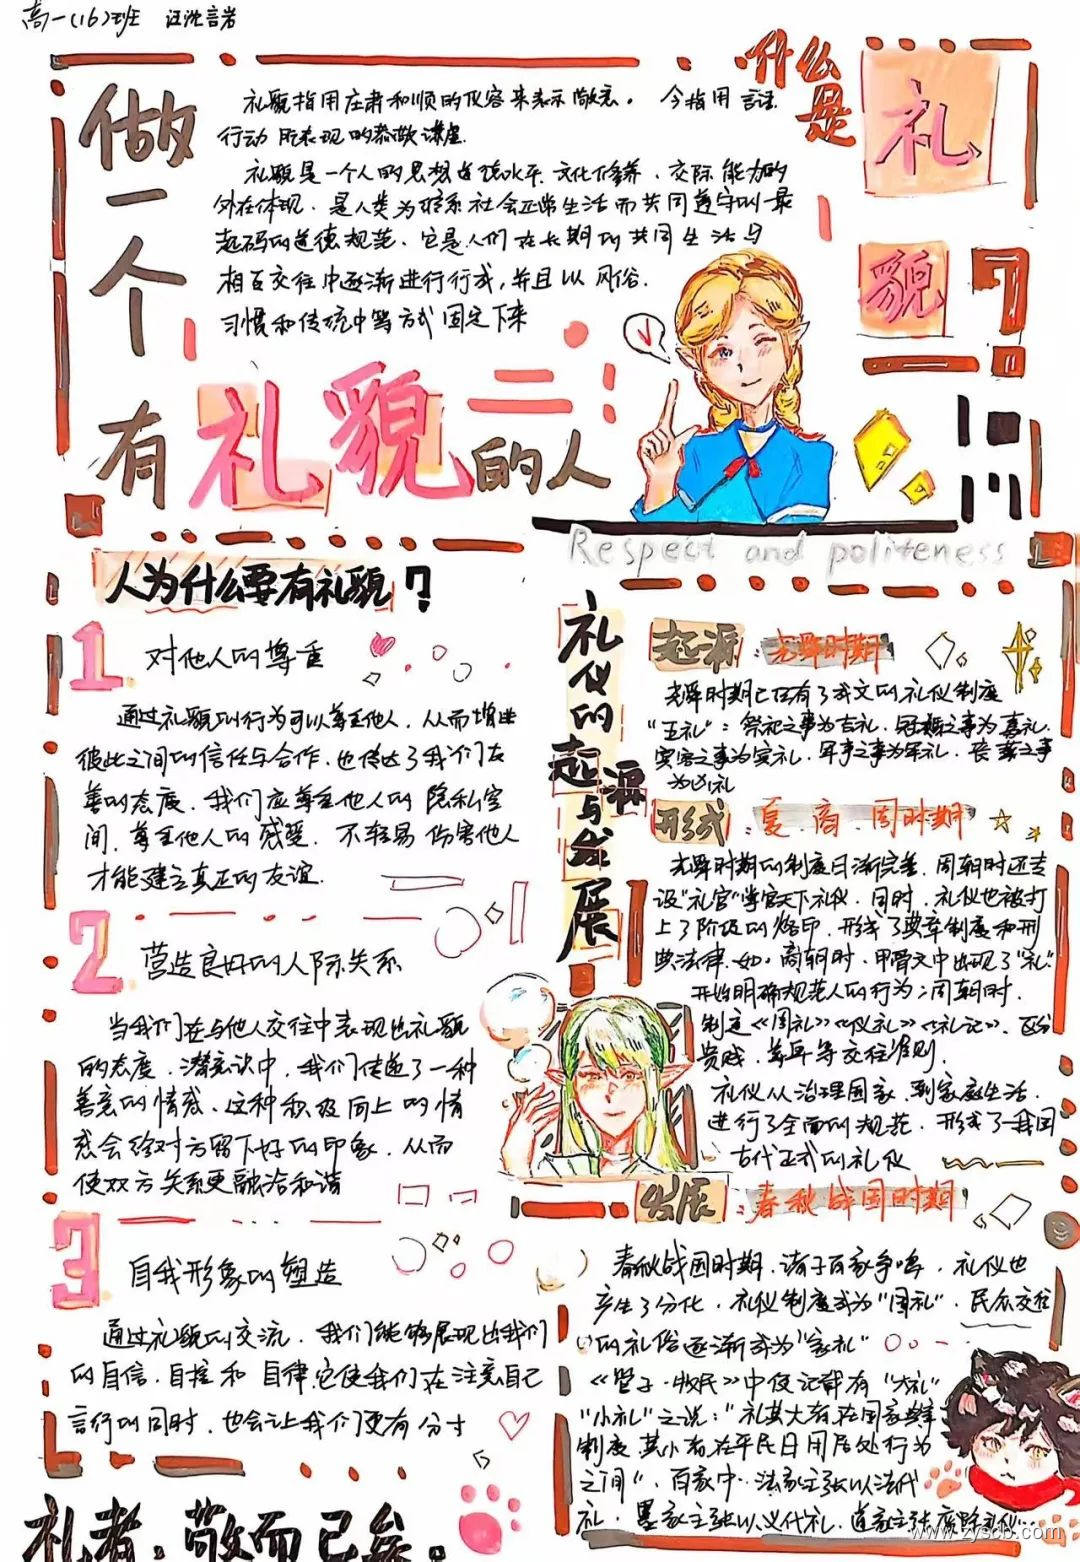 高一(16)班 汪沈言岩
做一个有礼貌的人
什么是礼貌?
礼貌指用庄肃和顺的仪容来表示敬意。 今指用言语
行动所表现的恭敬谦虚
礼貌是一个人的思想道德水平、文化修养、交际能力的
外在体现、是人类为维系社会正常生活而共同遵守的最
起码的道德规范、它是人们在长期的共同生活与
相互交往中逐渐进行形成,并且以风俗、
习惯和传统中等方式固定下来
Respect and politeness
人为什么要有礼貌?
1 对他人的尊重
通过礼貌的行为可以尊重他人、从而增进
彼此之间的信任与合作、也传达了我们友
善的态度、我们应尊重他人的隐私空
间、尊重他人的感受、不轻易伤害他人
才能建立真正的友谊.
2 营造良好的人际关系
当我们在与他人交往中表现出礼貌
的态度、潜意识中、我们传递了一种
善意的情感、这种积极向上的情
感会给对方留下好的印象、从而
使双方关系更融洽和谐
3 自我形象的塑造
通过礼貌的交流、我们能够展现出我们
的自信、自控和自律、它使我们在注意自己
言行的同时、也会让我们更有分寸
礼仪的起源与发展
起源:尧舜时期
尧舜时期已经有了成文的礼仪制度
“五礼”:祭祀之事为吉礼、冠婚之事为喜礼、
宾客之事为宾礼、军事之事为军礼、丧葬之事
为凶礼
形成:夏、商、周时期
尧舜时期的制度日渐完善、周朝时还专
设“礼官”掌管天下礼仪、同时、礼仪也被打
上了阶级的烙印、形成了典章制度和刑
典法律、如:商朝时、甲骨文中出现了“礼”
开始明确规范人的行为;周朝时、
制定《周礼》《仪礼》《礼记》、区分
贵贱、尊卑等交往准则.
礼仪从治理国家、到家庭生活、
进行了全面的规范、形成了我国
古代正式的礼仪
发展:春秋战国时期
春秋战国时期、诸子百家争鸣、礼仪也
产生了分化、礼仪制度成为“国礼”、民众交往
的礼俗逐渐成为“家礼”
《管子·牧民》中便记载有“大礼”
“小礼”之说:“礼其大者在国家典章
制度、其小者在平民日用居处行为
之间”、百家中、法家主张以法代
礼、墨家主张以义代礼、道家主张废除礼仪…
礼者,敬而已矣。
www.zyscb.com